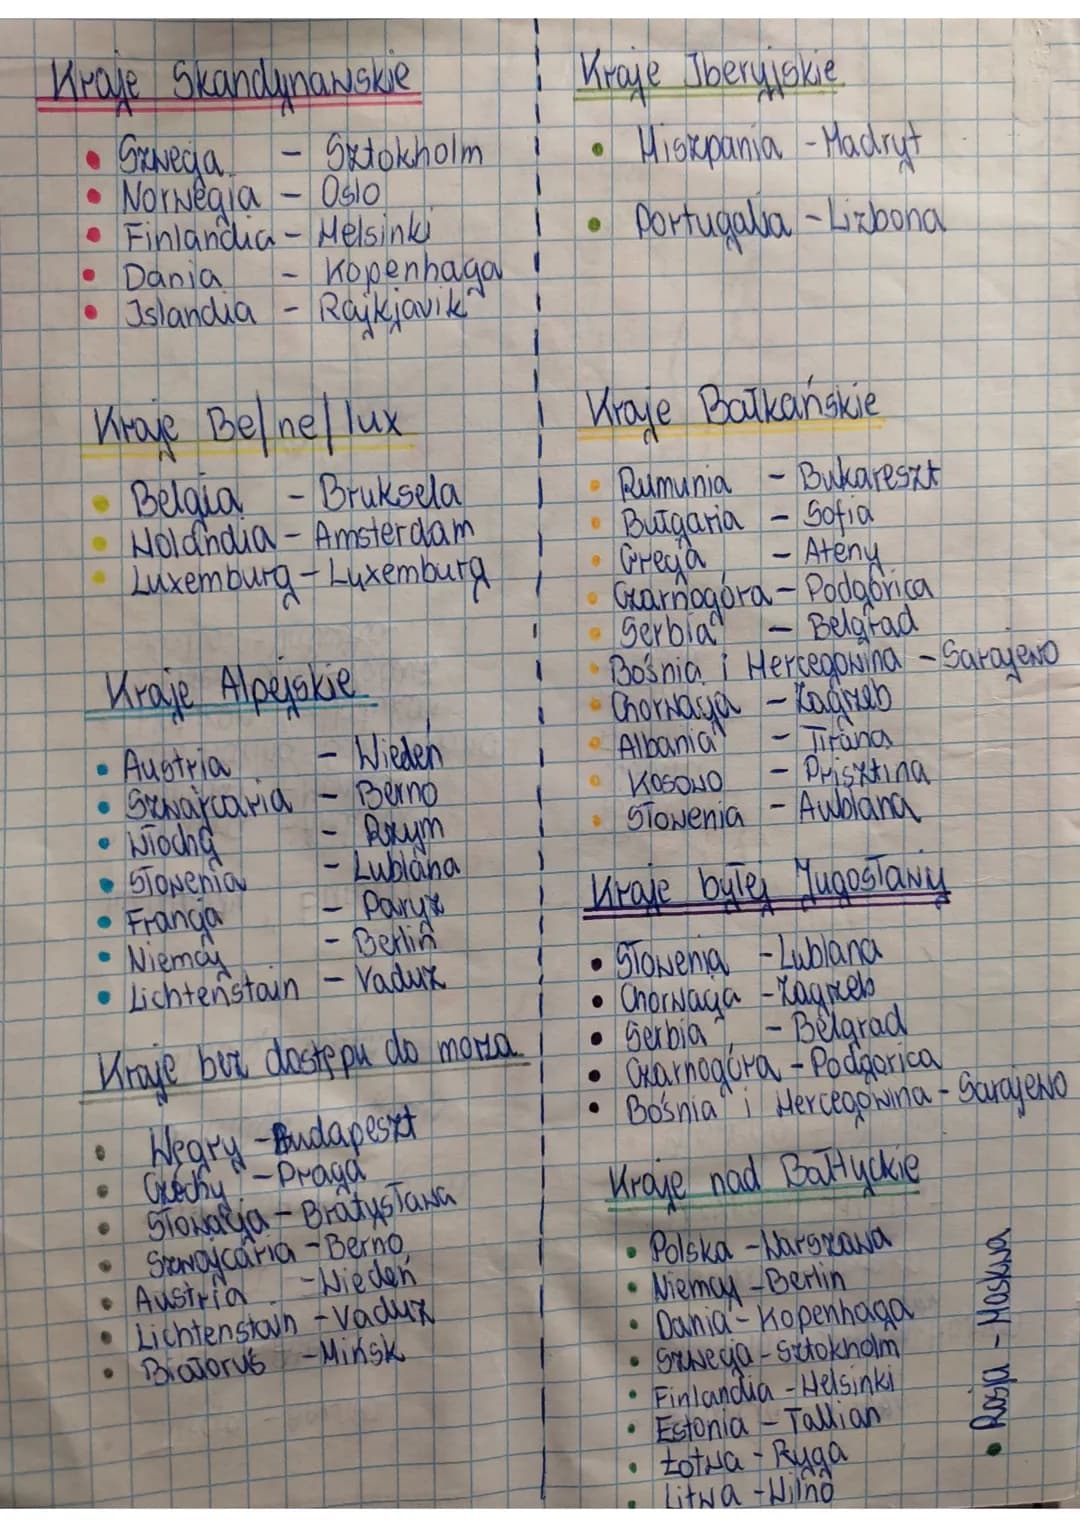 Kraje Skandynawskie
Szwecja - Sztokholm
Norwegia - Oslo
Finlandia - Helsinki
Dania - Kopenhaga
Islandia - Rajkjavik
Kraje Be/ne/lux
Belgia - Bruksela
Holandia - Amsterdam
Luxemburg - Luxemburg
Kraje Alpejskie
Austria - Wiedeń
Szwajcaria - Berno
Włochy - Rzym
Słowenia - Lublana
Francja - Paryż
Niemcy - Berlin
Lichtenstain - Vaduz
Kraje bez dostępu do morza
Węgry - Budapeszt
Czechy - Praga
Słowacja - Bratysława
Szwajcaria - Berno
Austria - Wiedeń
Lichtenstain - Vaduz
Białoruś - Mińsk
Kraje Iberyjskie
Hiszpania - Madryt
Portugalia - Lizbona
Kraje Bałkańskie
Rumunia - Bukareszt
Bułgaria - Sofia
Grecja - Ateny
Czarnogóra - Podgórica
Serbia - Belgrad
Bośnia i Hercegowina - Sarajewo
Chorwacja - Zagrzeb
Albania - Tirana
Kosowo - Prisztina
Słowenia - Lublana
Kraje byłej Jugosławi
Słowenia - Lublana
Chorwacja - Zagrzeb
Serbia - Belgrad
Czarnogóra - Podgorica
Bośnia i Hercegowina - Sarajewo
Kraje nad Bałtyckie
Polska - Warszawa
Niemcy - Berlin
Dania - Kopenhaga
Szwecja - Sztokholm
Finlandia - Helsinki
Estonia - Tallian
Łotwa - Ryga
Litwa - Wilno
Rosja - Moskwa